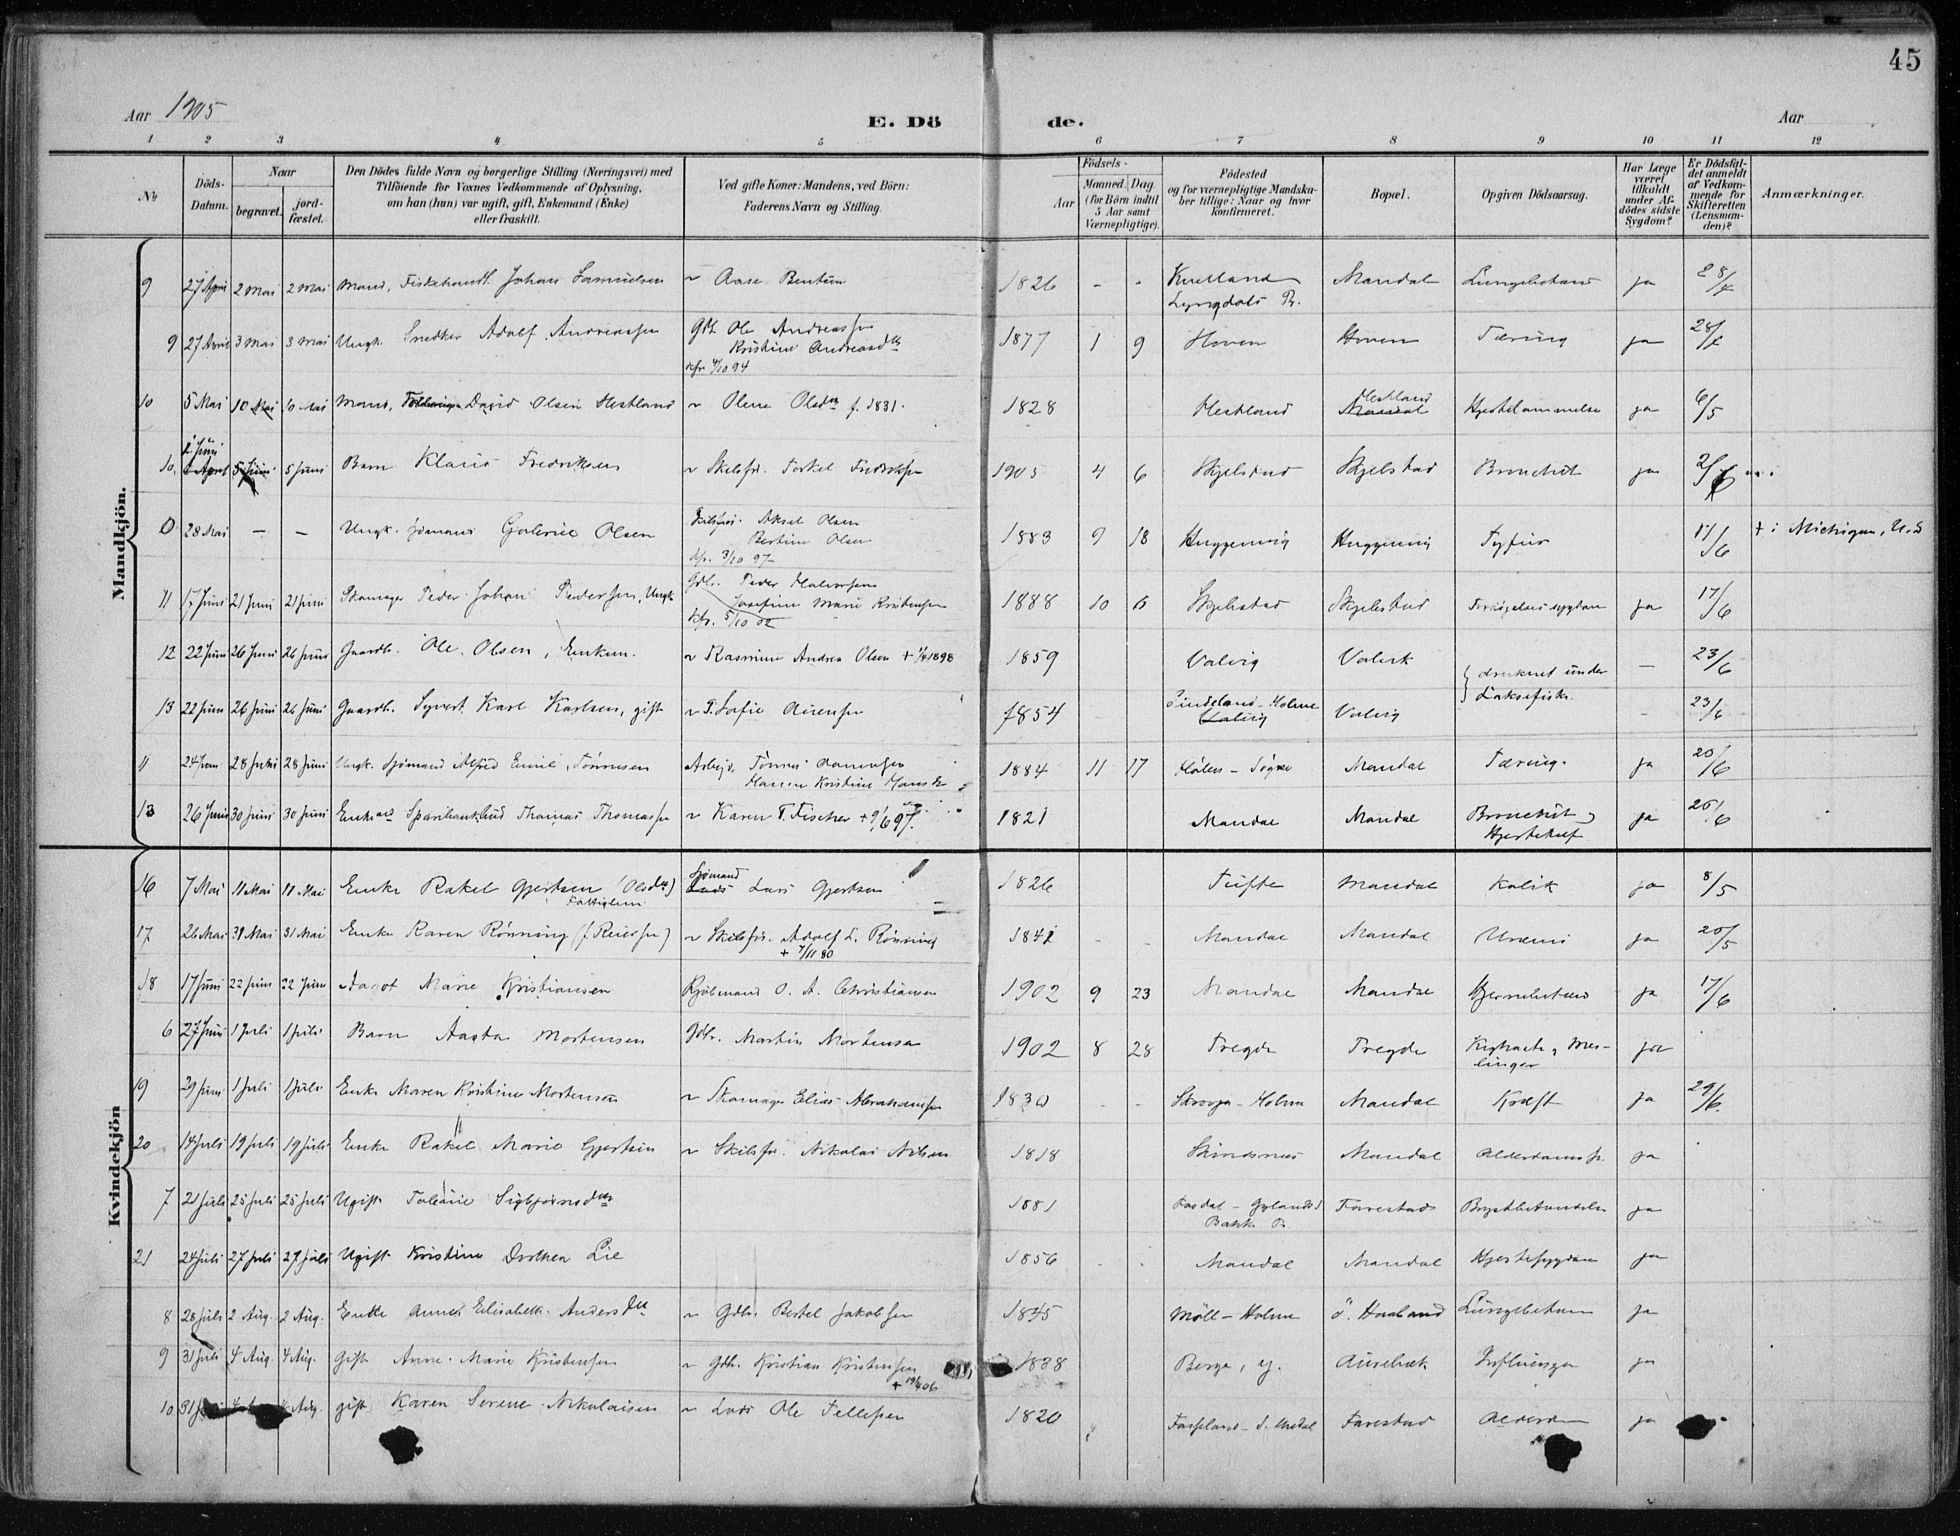 45
Aar 1905
E. Dö
de.
Aar
1 2 3 4 5 6 7 8 9 10 11 12
No
Döds-Datum.
Naar
begravet.
jord-fæstet.
Den Dödes fulde Navn og borgerlige Stilling (Næringsvei) med
Tilföiende for Voxnes Vedkommende af Oplysning,
om han (hun) var ugift, gift, Enkemand (Enke)
eller fraskilt.
Ved gifte Koner: Mandens, ved Börn:
Faderens Navn og Stilling.
Födsels-
Aar
Maaned. Dag
(for Börn indtil
5 Aar samt
Værnepligtige).
Födested
og for værnepligtige Mandska-
ber tillige: Naar og hvor
konfirmeret.
Bopæl.
Opgiven Dödsaarsag.
Har Læge
været
tilkaldt
under Af-
dödes sidste
Sygdom?
Er Dödsfal-
det anmeldt
af Vedkom-
mende for
Skifteretten
(Lensman-
den)?
Anmærkninger.
Mandkjön.
9 27 April 2 Mai 2 Mai Mand, Fiskehandl. Johan Samuelsen ~ Aase Bentsen 1826 - - Kvelland Lyngdals Pr. Mandal Lungebetænd ja 28/4
9 27 April 3 Mai 3 Mai Ungk. Snedker Adolf Andreassen Gbr. Ole Andreassen 1877 1 9 Hoven Hoven Tæring ja 28/4
Kristine Andreasdtr
kfr 7/10 94
10 5 Mai 10 Mai 10 Mai Mand, David Olsen Hestland ~ Olene Olsdtr f. 1831. 1828 Hestland Hestland Hjertelammelse ja 6/5
10. 2 Juni 5 Juni 5 Juni Barn Klaus Fredriksen ~ Skibsfr. Torkel Fredriksen 1905 4 6 Skjelstad Skjelstad Bronchit ja 2/6
0 28 Mai — — Ungk. Sjømand Gabriel Olsen Skibsfør. Aksel Olsen 1883 9 18 Huggenvig Huggenvig Tyfus 17/6 + i Michigan, U.S
Bertine Olsen
kfr. 3/10 97
11 17 Juni 21 Juni 21 Juni Skomager Peder Johan Pedersen, Ungk Gbr. Peder Halvorsen 1888 10 Skjelstad Skjelstad ja 17/6
Josefine Marie Kristensen
kfr. 5/10 02
12 22 Juni 26 Juni 26 Juni Gaardb. Ole Olsen, Enkem. ~ Rasmine Andrea Olsen + 1898 1859 Valvig Valvik druknet under — 23/6
13 22 Juni 26 Juni 26 Juni Gaardb. Syvert Karl Karlsen, gift ~ T. Sofie 1854 Holme Valvig Valvig Laksefisk. 23/6
11 24 Juni 28 Juni 28 Juni Ungk. Sjømand Alfred Emil Tønnesen Arbeid. Tønnes 1884 11 17 Søgne Mandal Tæring. ja 20/6
Kristine Hansdtr
13 26 Juni 30 Juni 30 Juni Enkemd Sparibankbud Thomas Thomassen ~ Karen T. Fischer + 9/6 97. 1821 Mandal Mandal Bronchit og Hjertefeil ja 26/6
Kvindekjön
16 7 Mai 11 Mai 11 Mai Enke Rakel Gjertsen (Olsdtr) Fattiglem Sjømand Lars Gjertsen 1826 Tufte Mandal Kolik ja 8/5
17 26 Mai 31 Mai 31 Mai Enke Karen Rønning ~ Skibsfr. Adolf L. Rønning + 7/11 80 1841 - - Mandal Mandal Uremi ja 20/5
18 17 Juni 22 Juni 22 Juni Aagot Marie Kristiansen Kjøbmand O. A. Christiansen 1902 9 23 Mandal Mandal Hjernebetænd ja 17/6
6 27 Juni 1 Juli 1 Juli Barn Aasta Mortensen Gbr. Martin Mortensen 1902 8 28 Tregde Tregde Kighoste, Mes-linger ja
19 29 Juni 1 Juli 1 Juli Enke Maren Kristine Mortensen ~ Skomager Elias Abrahamsen 1830 - - Holme Mandal Kræft ja 29/6.
20 14 Juli 19 Juli 19 Juli Enke Rakel Marie Gjertsen ~ Skibsfr. Nikolai Nilsen 1818 Skinsnes Mandal Alderdomssv. ja
7 21 Juli 25 Juli 25 Juli Ugift Sigbjørnsdtr 1881 Gyland Bakke Pr. Farestad Brystbetændelse ja
21 24 Juli 27 Juli 27 Juli Ugift Kristine Dorthea Lie 1856 - - Mandal Mandal Hjertesygdom ja
8 28 Juli 2 Aug. 2 Aug. Enke Anne Elisabeth Andersdtr ~ Gbr. Bertel Jakobsen 1845 Møll - Holme ö. Haaland Lungebetænd ja
9 31 Juli 4 Aug. 4 Aug. Gift Anne Marie Kristensen ~ Gbr. Kristian Kristensen 1838 Berge, Aurebæk Influenza ja
10 31 Aug. gift Karen Serene Nikolaisen ~ Lods Ole Tellefsen 1820 Farestad ja